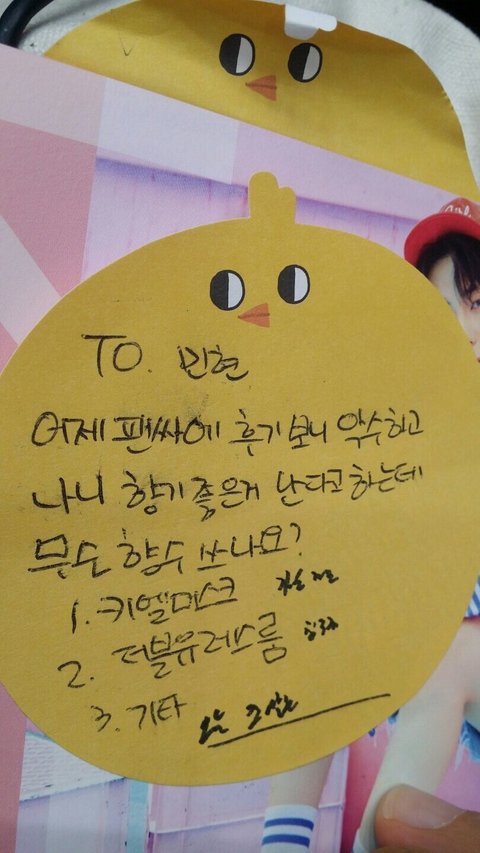 TO. 민현
어제 팬싸에 후기 보니 악수하고
나니 향기 좋은게 난다고 하는데
무슨 향수 쓰나요?
1. 키엘머스크
2. 더블유 레스룸
3. 기타